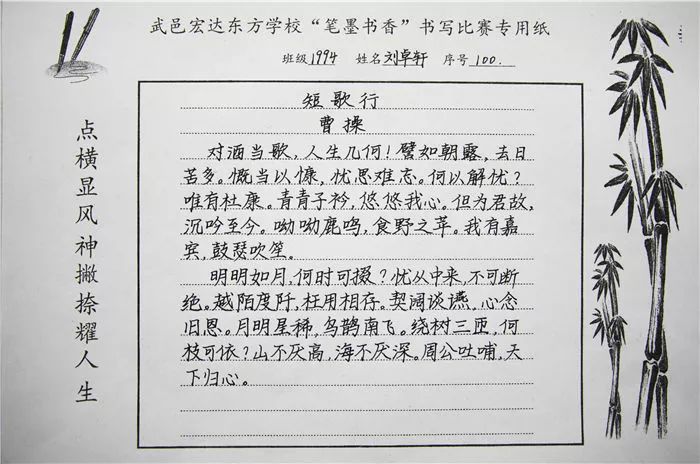 武邑宏达东方学校“笔墨书香”书写比赛专用纸
班级1994 姓名刘卓轩 序号100.
点横显风神撇捺耀人生
短歌行
曹操
对酒当歌，人生几何！譬如朝露，去日
苦多。慨当以慷，忧思难忘。何以解忧？
唯有杜康。青青子衿，悠悠我心。但为君故，
沉吟至今。呦呦鹿鸣，食野之苹。我有嘉
宾，鼓瑟吹笙。
明明如月，何时可掇？忧从中来，不可断
绝。越陌度阡，枉用相存。契阔谈讌，心念
旧恩。月明星稀，乌鹊南飞。绕树三匝，何
枝可依？山不厌高，海不厌深。周公吐哺，天
下归心。